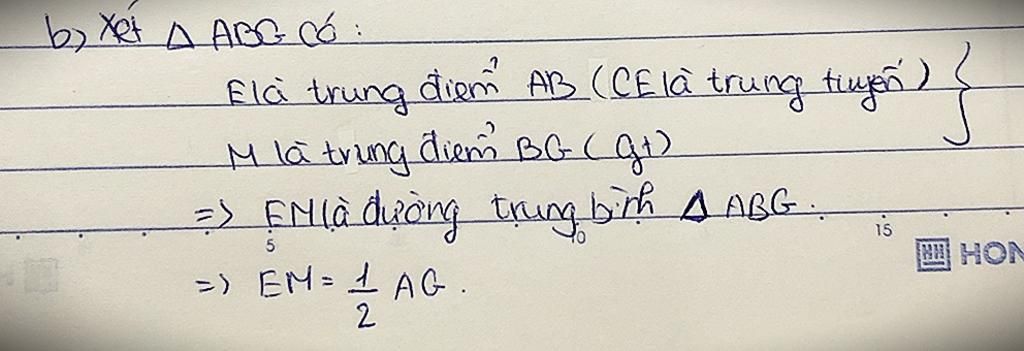 b) Xét Δ ABG có :
E là trung điểm AB (CE là trung tuyến) }
M là trung điểm BG (gt)
=> EM là đường trung bình Δ ABG.
5 10 15
HON
=> EM = 1/2 AG.